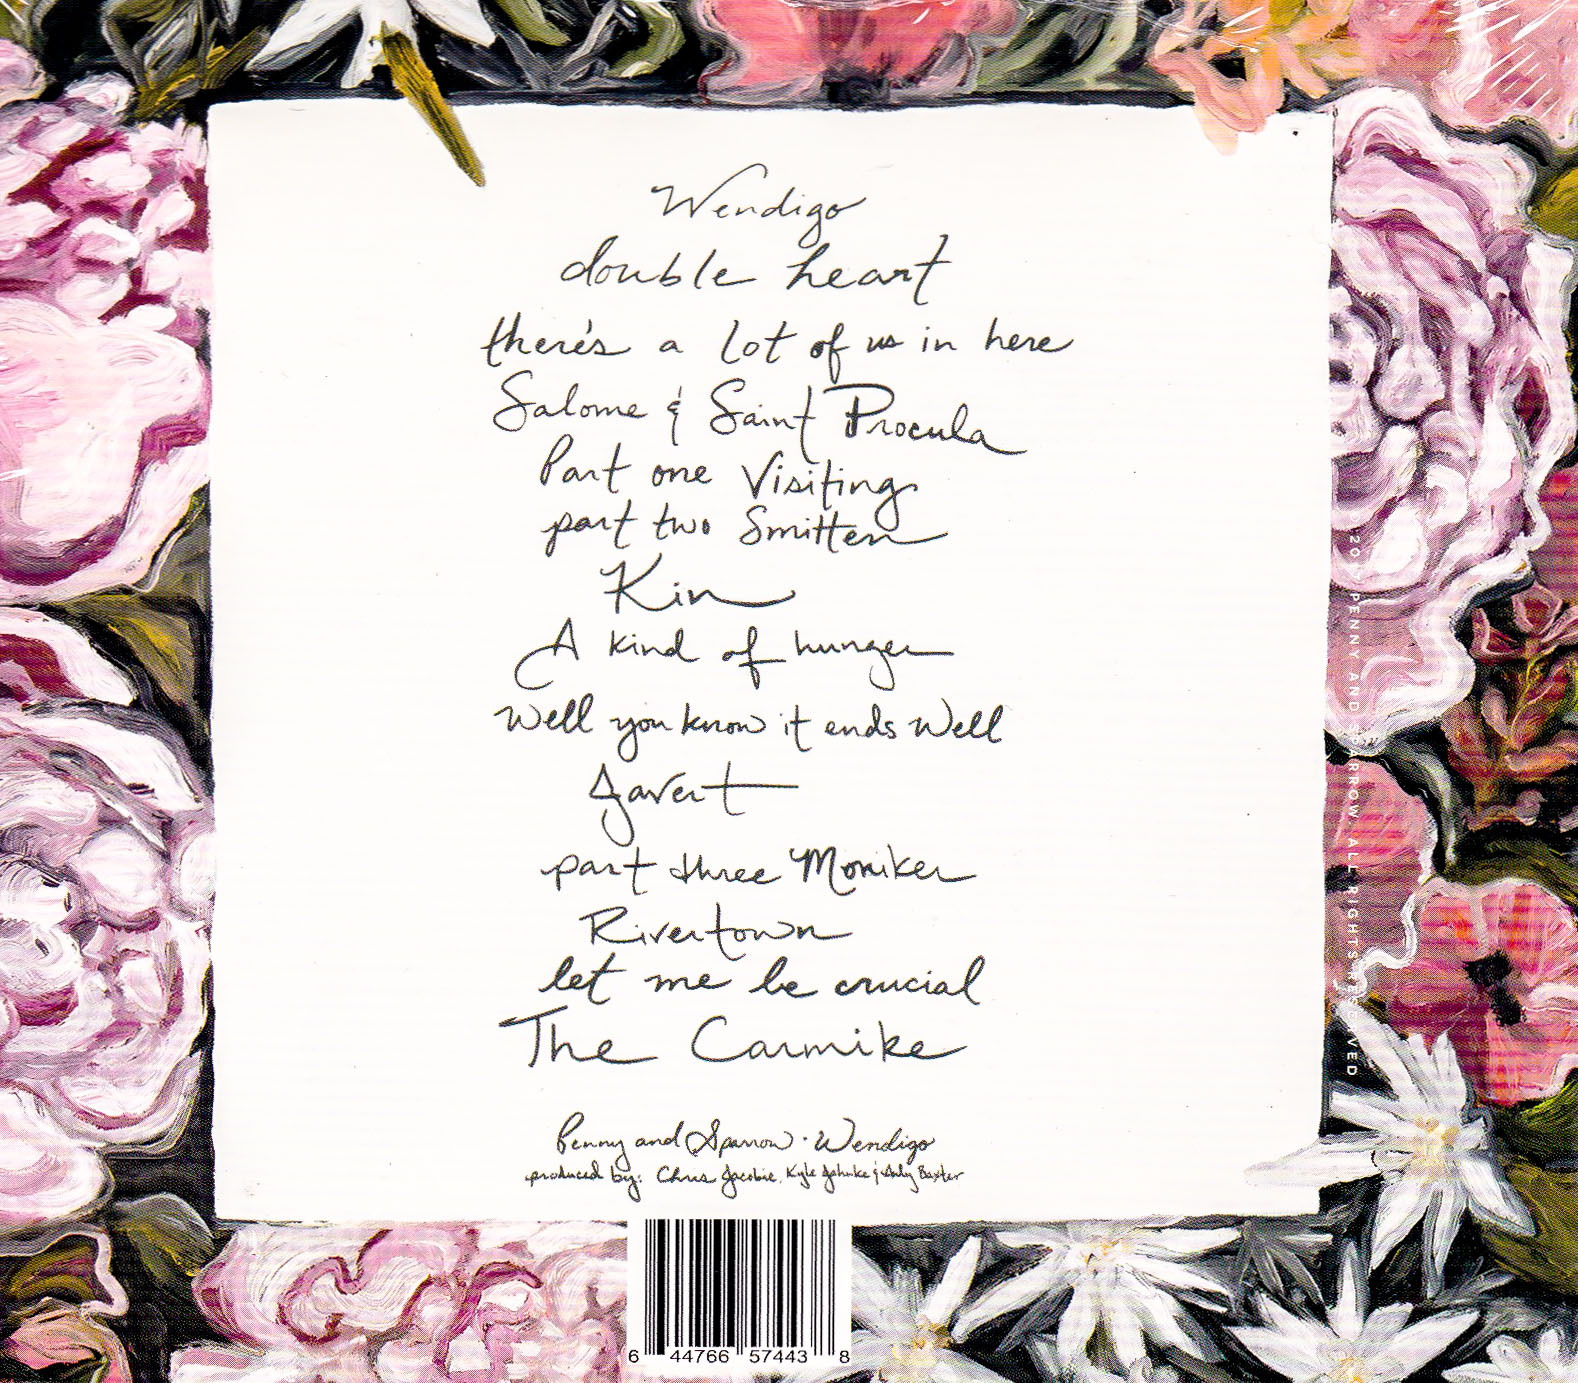 Wendigo
double heart
there's a lot of us in here
Salome & Saint Procula
Part one Visiting
part two Smitten
Kin
A kind of hunger
Well you know it ends Well
Javert
part three Moniker
Rivertown
let me be crucial
The Carmike
Penny and Sparrow · Wendigo
produced by: Chris Jacobie, Kyle Jahnke & Andy Baxter
6 44766 57443 8
PENNY AND SPARROW ALL RIGHTS RESERVED